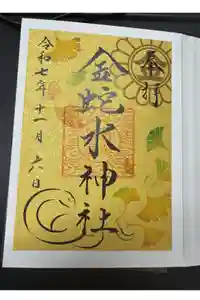 金行
金蛇水神社
令和七年十一月六日